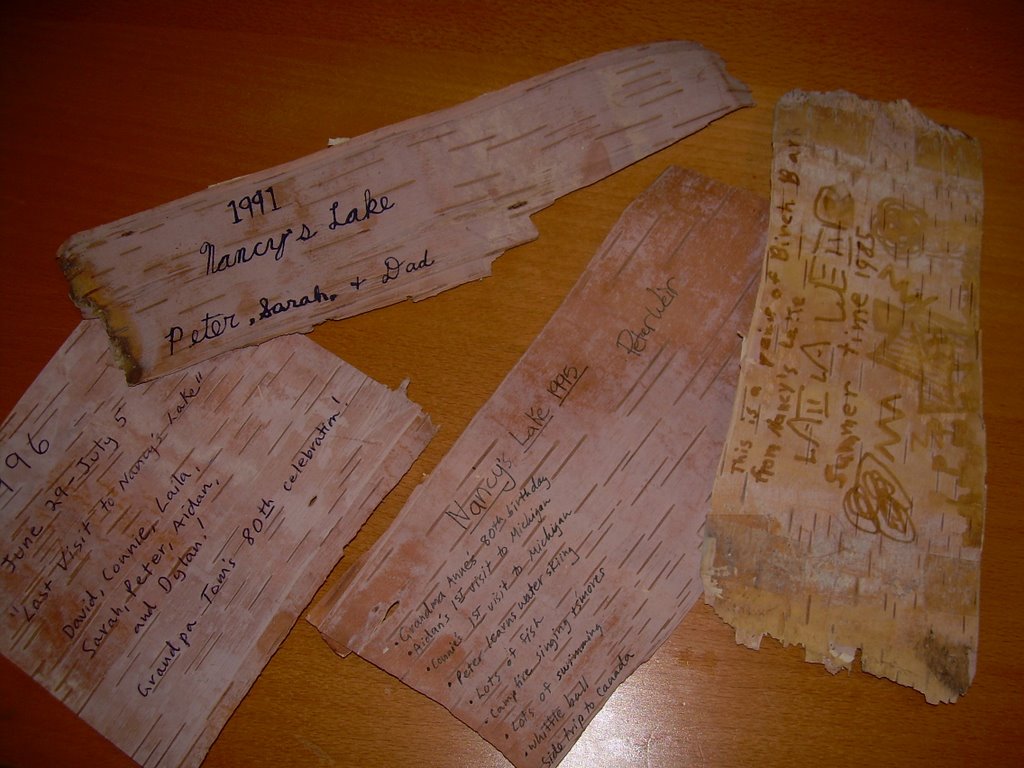 1991
Nancy's Lake
Peter, Sarah, + Dad
96
June 29-July 5
"Last Visit to Nancy's Lake"
David, Connie, Laila,
Sarah, Peter, Aidan,
and Dylan!
Grandpa Tom's 80th celebration!
Peter Weir
Nancy's Lake 1995
• Grandma Anne's 80th birthday
• Aidan's 1st visit to Michigan
• Connie's 1st visit to Michigan
• Peter learns water skiing
• Lots of fish
• Campfire singing + smores
• Lots of swimming
• Whittle ball
Side trip to Canada
This is a peice of Birch Bark
from Nancy's Lake
Summer time 1995